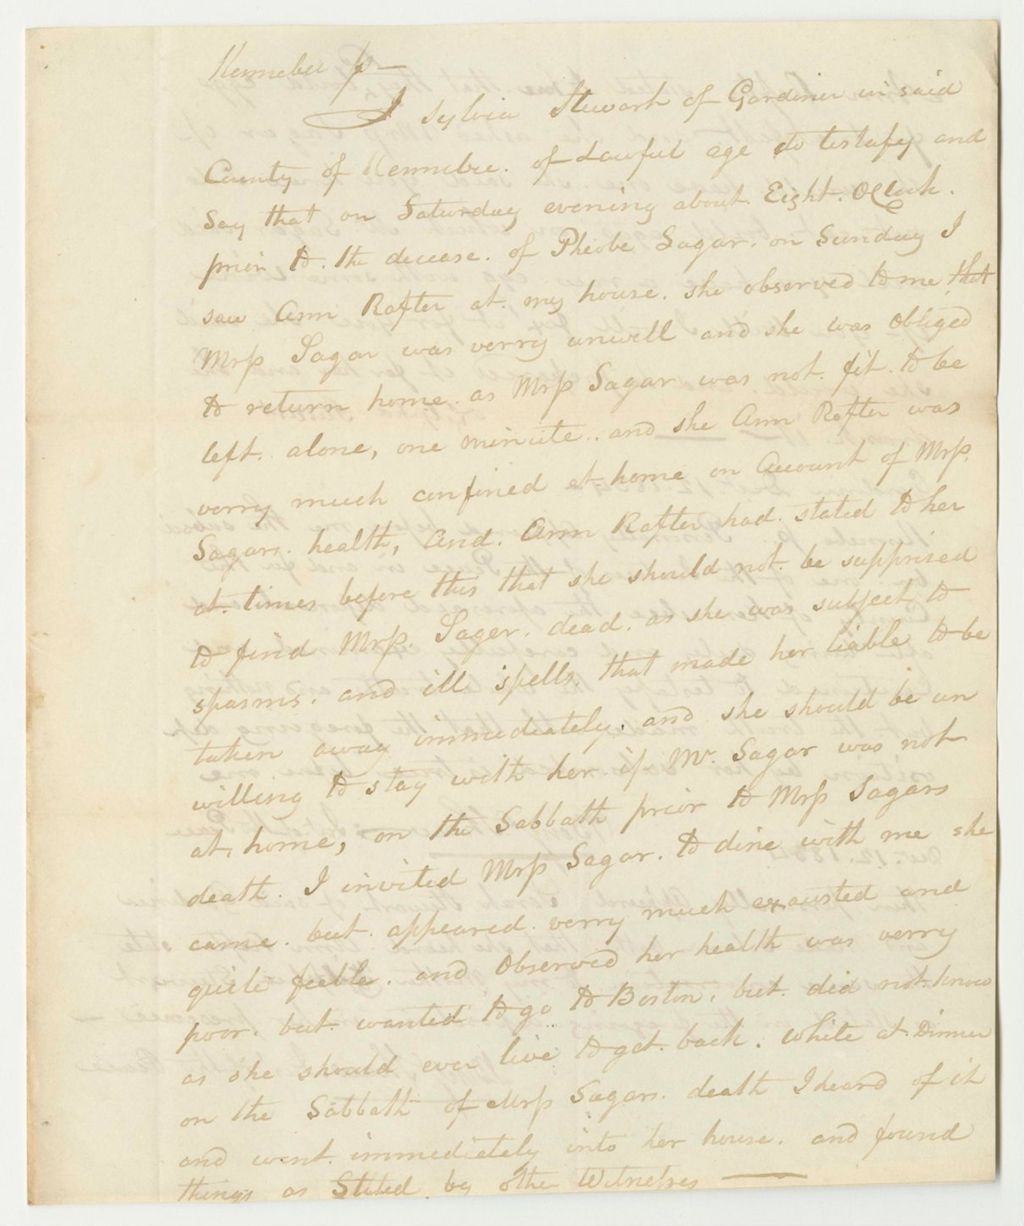 Kennebec ss —
I Sylvia Stewart of Gardiner in said
County of Kennebec. of Lawful age do testafy and
Say that on Saturday evening about. Eight. OClock.
prior to. the decease. of Pheobe Sagar. on Sunday I
saw Ann Rafter at. my house. she observed to me that
Mrss Sagar was verry unwell and she was obliged
to return home. as Mrss Sagar was not. fit. to be
left. alone, one minute.. and she Ann Rafter was
verry much confined at home on Account of Mrss.
Sagars. health, and. Ann Rafter had. stated to her
at. times before this that she should not. be supprised
to find Mrss. Sager. dead. as she was subject to
spasms. and ill spells. that made her liable to be
taken away immediately. and she should be un
willing to stay with her if Mr. Sagar was not
at. home, on the Sabbath prior to Mrss Sagars
death. I invited Mrss Sagar. to dine with me she
came. but. appeared. verry much exausted and
quite feeble. and Observed her health was verry
poor. but. wanted to go to Boston. but. did not. know
as she should ever live to get. back. While at. Dinner
on the Sabbath of Mrss Sagars. death I heard of it
and went. immediately into her house. and found
things as Stated by other Witnesses —